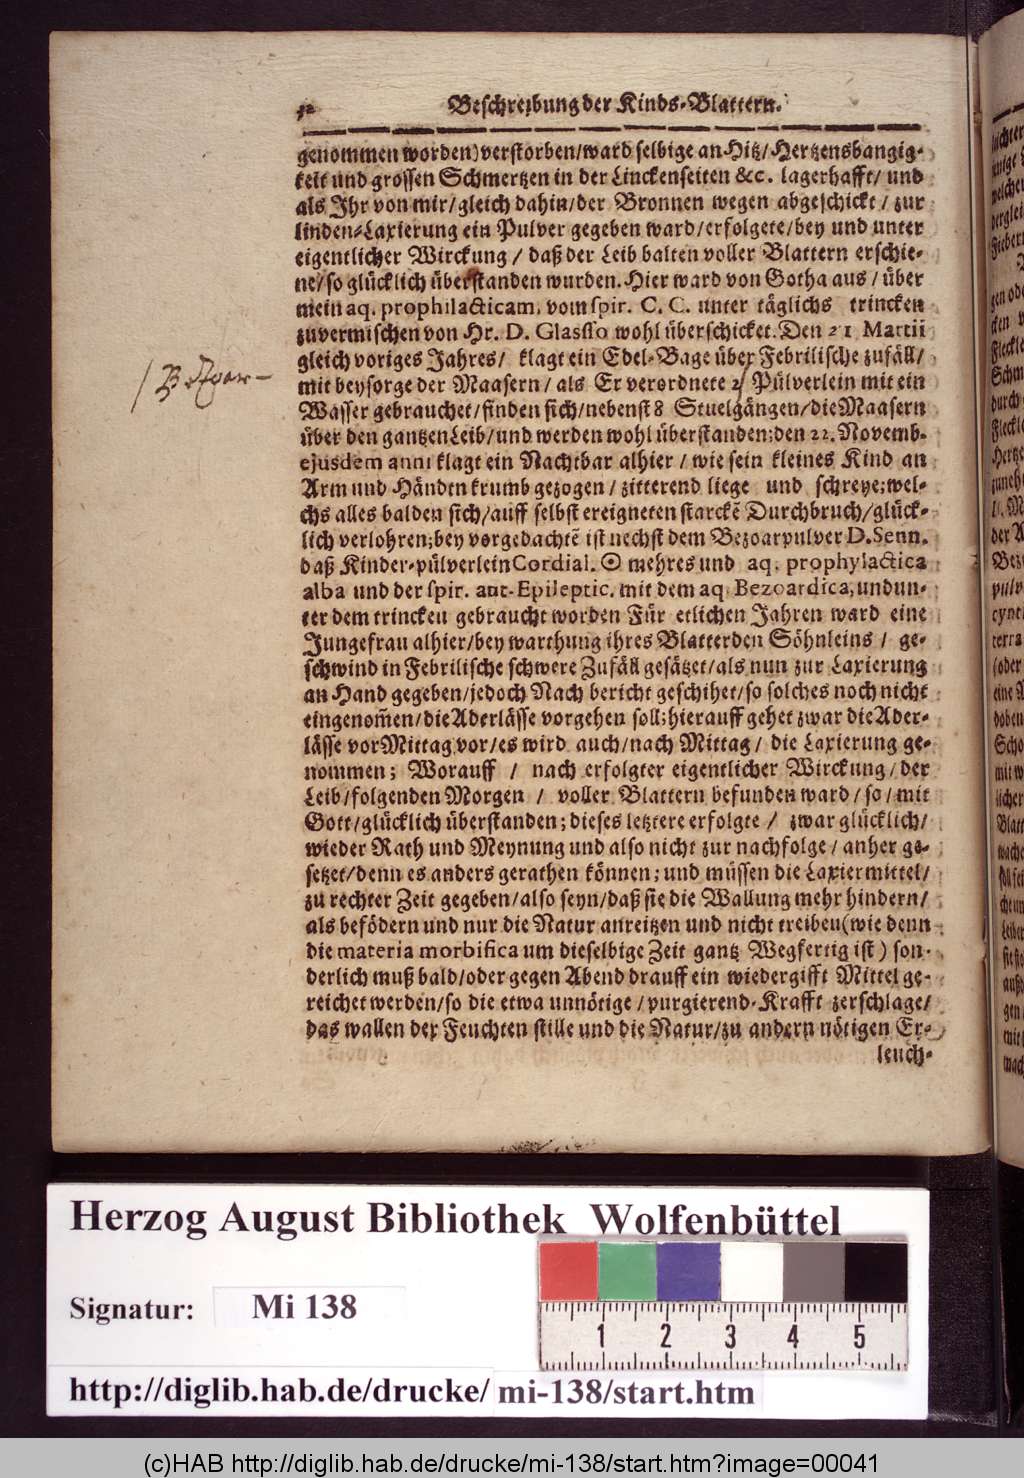 32 Beschreibung der Kinds-Blattern.
genommen worden) verstorben/ward selbige an Hitz/Hertzensbangig-
keit und grossen Schmertzen in der Linckenseiten &c. lagerhafft/ und
als Ihr von mir/gleich dahin/der Bronnen wegen abgeschickt / zur
linden-Laxierung ein Pulver gegeben ward/erfolgete/bey und unter
eigentlicher Wirckung / daß der Leib balten voller Blattern erschie-
ne/so glücklich überstanden wurden. Hier ward von Gotha aus / über
mein aq. prophilacticam, vom spir. C. C. unter täglichs trincken
zuvermischen von Hr. D. Glasso wohl überschicket. Den 21 Martii
gleich voriges Jahres/ klagt ein Edel-Bage über Febrilische zufäll/
mit beysorge der Maasern / als Er verordnete 2/ Pülverlein mit ein
Wasser gebrauchet/finden sich/nebenst 8 Stuelgängen/die Maasern
über den gantzen Leib/und werden wohl überstanden; den 22. Novemb.
ejusdem anni klagt ein Nachtbar alhier / wie sein kleines Kind an
Arm und Händen krumb gezogen / zitterend liege und schreye; wel-
chs alles balden sich/auff selbst ereigneten starckẽ Durchbruch/glück-
lich verlohren; bey vorgedachtẽ ist nechst dem Bezoarpulver D. Senn.
daß Kinder-pülverlein Cordial. ☉ mehres und aq. prophylactica
alba und der spir. ant-Epileptic. mit dem aq Bezoardica, undun-
ter dem trincken gebraucht worden Für etlichen Jahren ward eine
Jungefrau alhier/bey warthung ihres Blatterden Söhnleins / ge-
schwind in Febrilische schwere Zufäll gesätzet/als nun zur Laxierung
an Hand gegeben/jedoch Nach bericht geschihet/so solches noch nicht
eingenom̃en/die Aderlässe vorgehen soll; hierauff gehet zwar die Ader-
lässe vor Mittag vor/es wird auch/nach Mittag / die Laxierung ge-
nommen; Worauff / nach erfolgter eigentlicher Wirckung / der
Leib/folgenden Morgen / voller Blattern befunden ward/ so / mit
Gott/glücklich überstanden; dieses letztere erfolgte / zwar glücklich/
wieder Rath und Meynung und also nicht zur nachfolge / anher ge-
setzet/denn es anders gerathen können; und müssen die Laxiermittel/
zu rechter Zeit gegeben/also seyn/daß sie die Wallung mehr hindern/
als befödern und nur die Natur anreitzen und nicht treiben (wie denn
die materia morbifica um dieselbige Zeit gantz Wegfertig ist ) son-
derlich muß bald/oder gegen Abend drauff ein wiedergifft Mittel ge-
reichet werden/so die etwa unnötige / purgierend-Krafft zerschlage/
das wallen der Feuchten stille und die Natur/zu andern nötigen Er-
leuch-
Herzog August Bibliothek Wolfenbüttel
Signatur: Mi 138
1 2 3 4 5
http://diglib.hab.de/drucke/ mi-138/start.htm
(c)HAB http://diglib.hab.de/drucke/mi-138/start.htm?image=00041